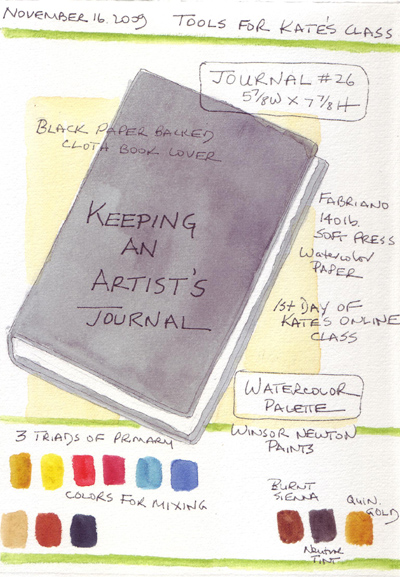 NOVEMBER 16. 2009 TOOLS FOR KATE'S CLASS
JOURNAL #26
5 7/8 W X 7 7/8 H
BLACK PAPER BACKED
CLOTH BOOK COVER
KEEPING
AN
ARTIST'S
JOURNAL
FABRIANO
140 lb.
SOFT PRESS
Watercolor
PAPER
1st DAY OF
KATE'S ONLINE
CLASS
WATERCOLOR
PALETTE
WINSOR NEWTON
PAINTS
3 TRIADS OF PRIMARY
COLORS FOR MIXING
BURNT
SIENNA
QUIN.
GOLD
Neutral
TINT